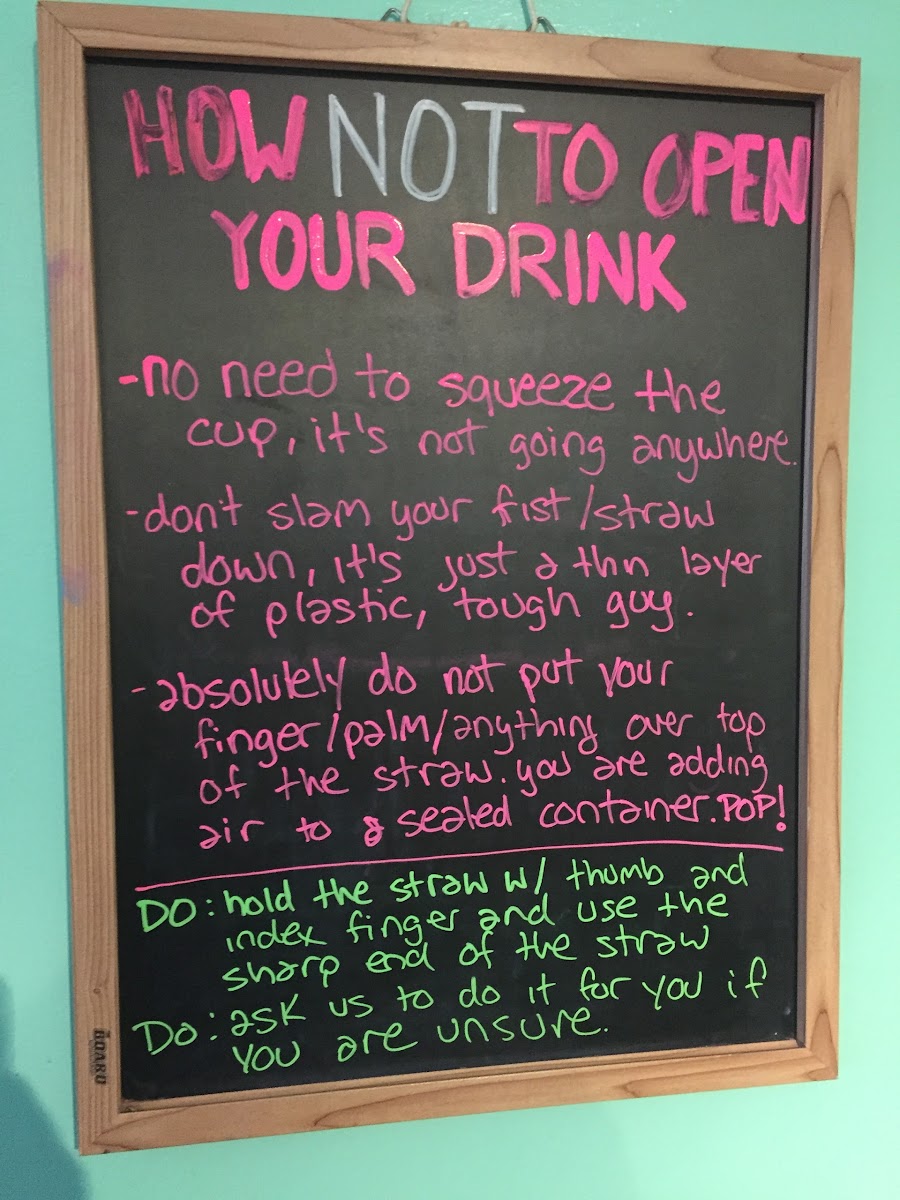 HOW NOT TO OPEN
YOUR DRINK
-no need to squeeze the
cup, it's not going anywhere.
-don't slam your fist/straw
down, it's just a thin layer
of plastic, tough guy.
-absolutely do not put your
finger/palm/anything over top
of the straw. you are adding
air to a sealed container. POP!
DO: hold the straw w/ thumb and
index finger and use the
sharp end of the straw
Do: ask us to do it for you if
you are unsure.
BOARD